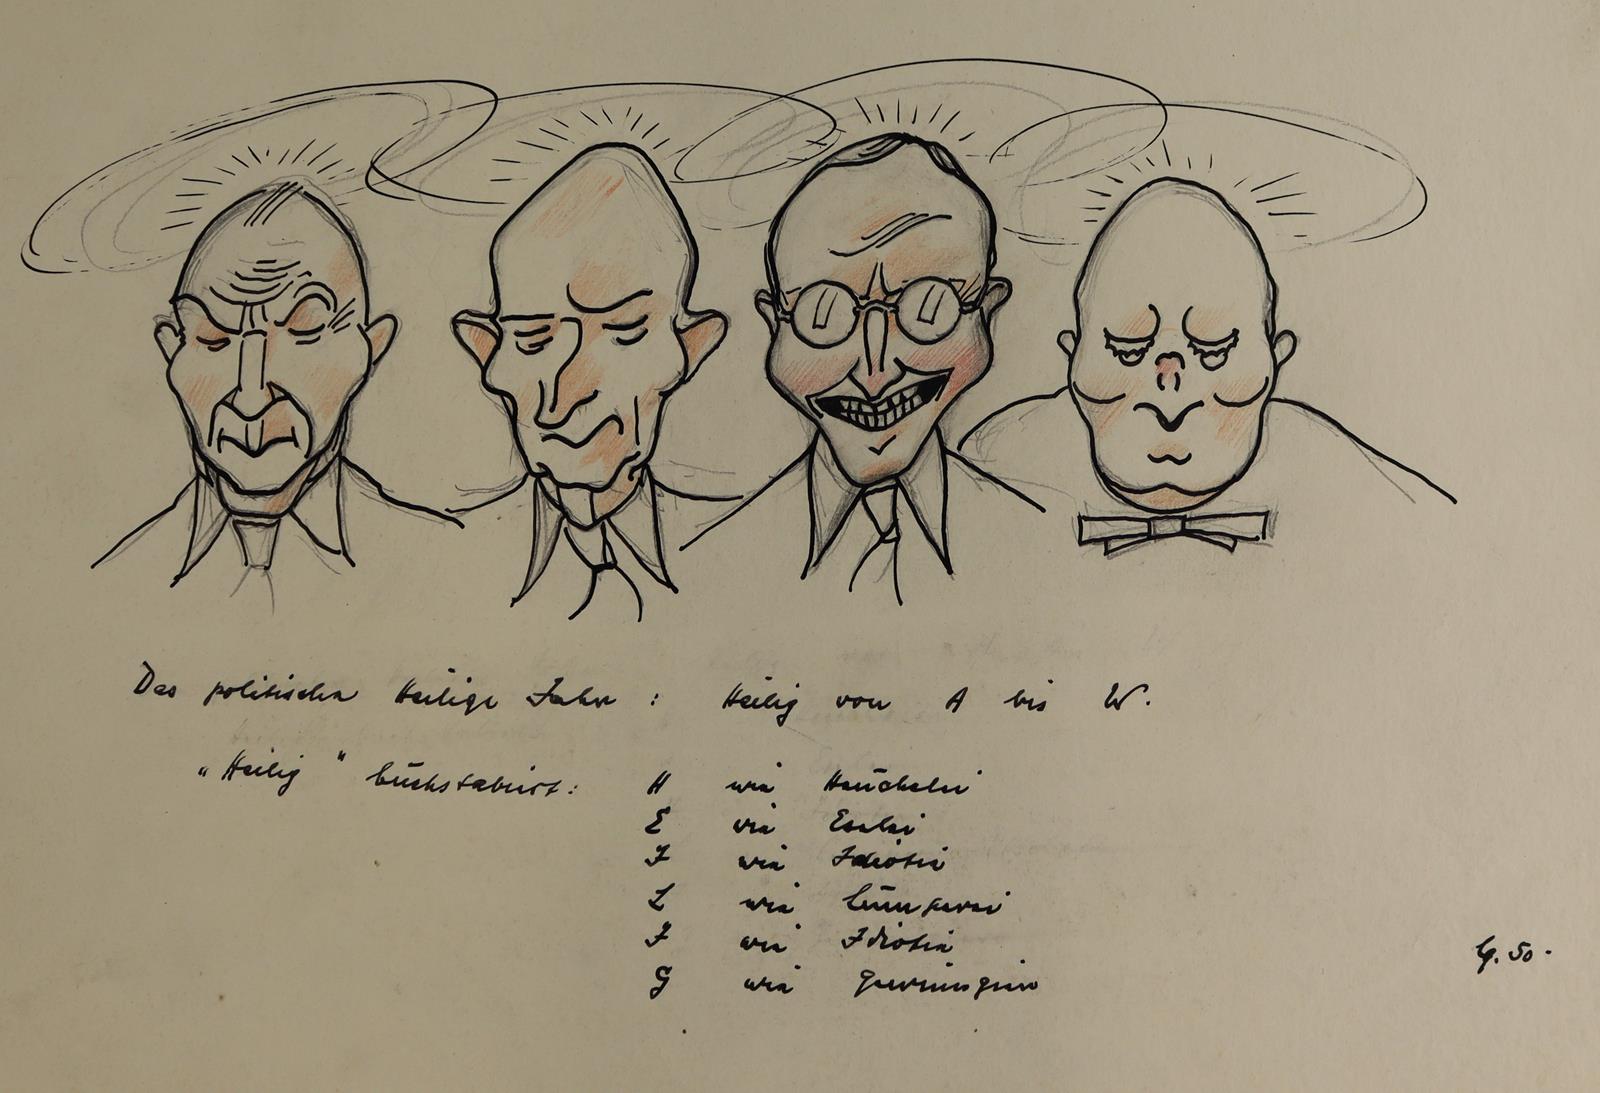 Das politische Heilige Jahr : Heilig von A bis W.
"Heilig" buchstabiert: H wie Heuchelei
E wie Eselei
I wie Idiotie
L wie Lumperei
I wie Idiotie
G wie
G. 50.